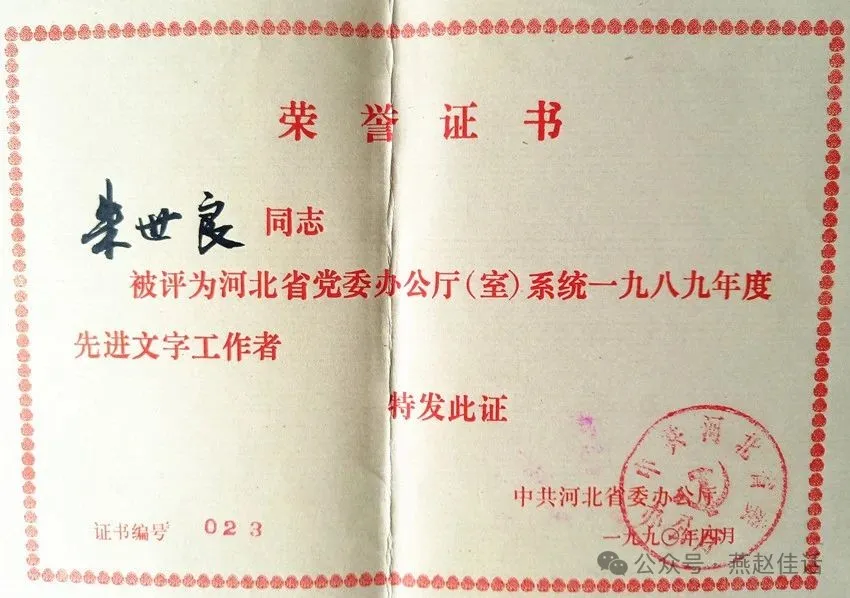 荣誉证书
朱世良 同志
被评为河北省党委办公厅(室)系统一九八九年度
先进文字工作者
特发此证
中共河北省委办公厅
中共河北省委办公厅
证书编号 023
一九九〇年四月
公众号·燕赵佳话